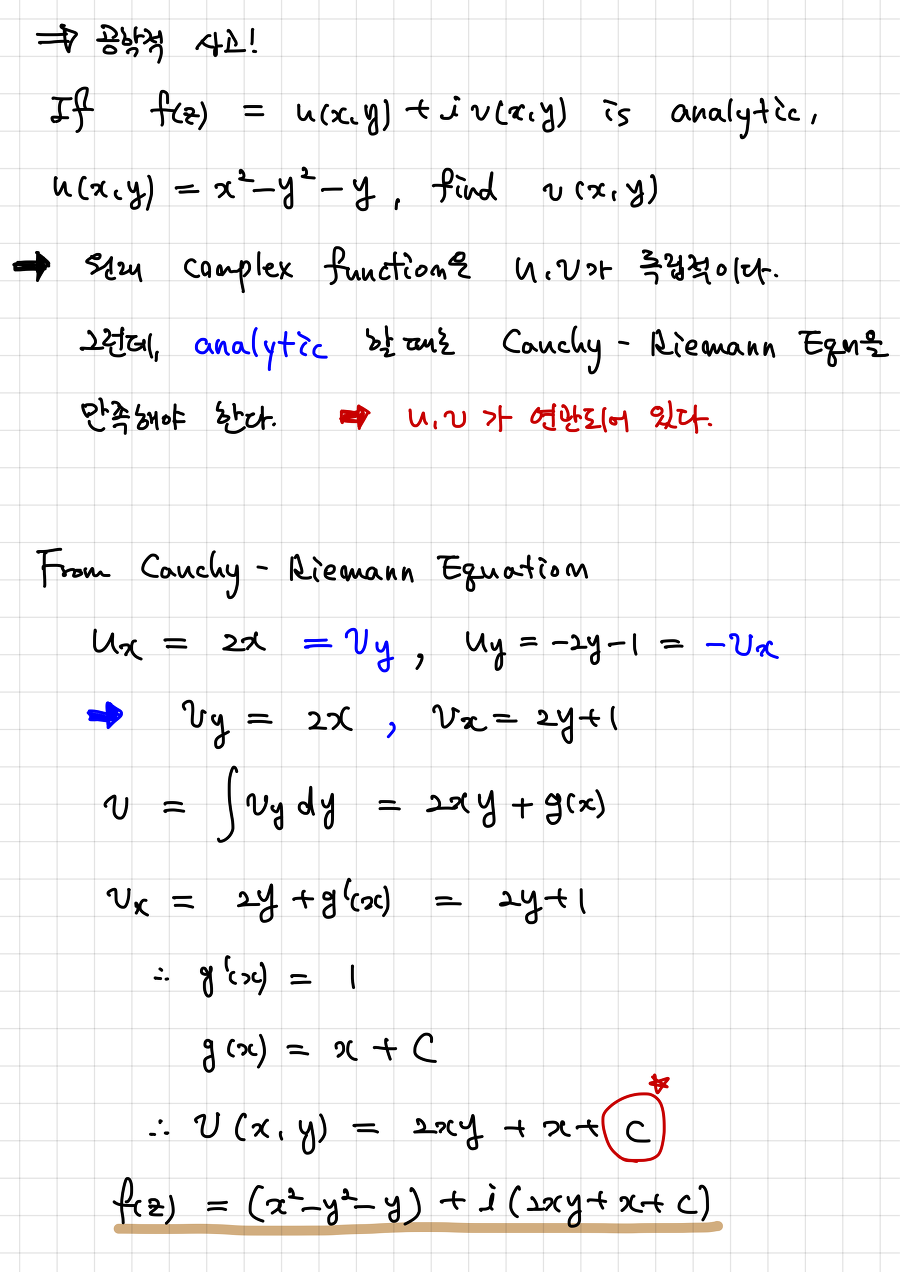 ⇒ 공학적 사고!
If f(z) = u(x,y) + i v(x,y) is analytic,
u(x,y) = x²-y²-y, find v(x,y)
➡ 원래 complex function은 u,v가 독립적이다.
그런데, analytic 할 때는 Cauchy - Riemann Eqn을
만족해야 한다. ➡ u,v가 연관되어 있다.
From Cauchy - Riemann Equation
uₓ = 2x = v_y, u_y = -2y-1 = -vₓ
➡ v_y = 2x, vₓ = 2y+1
v = ∫v_y dy = 2xy + g(x)
vₓ = 2y + g'(x) = 2y+1
∴ g'(x) = 1
g(x) = x + C
∴ v(x,y) = 2xy + x + C ★
f(z) = (x²-y²-y) + i(2xy+x+C)